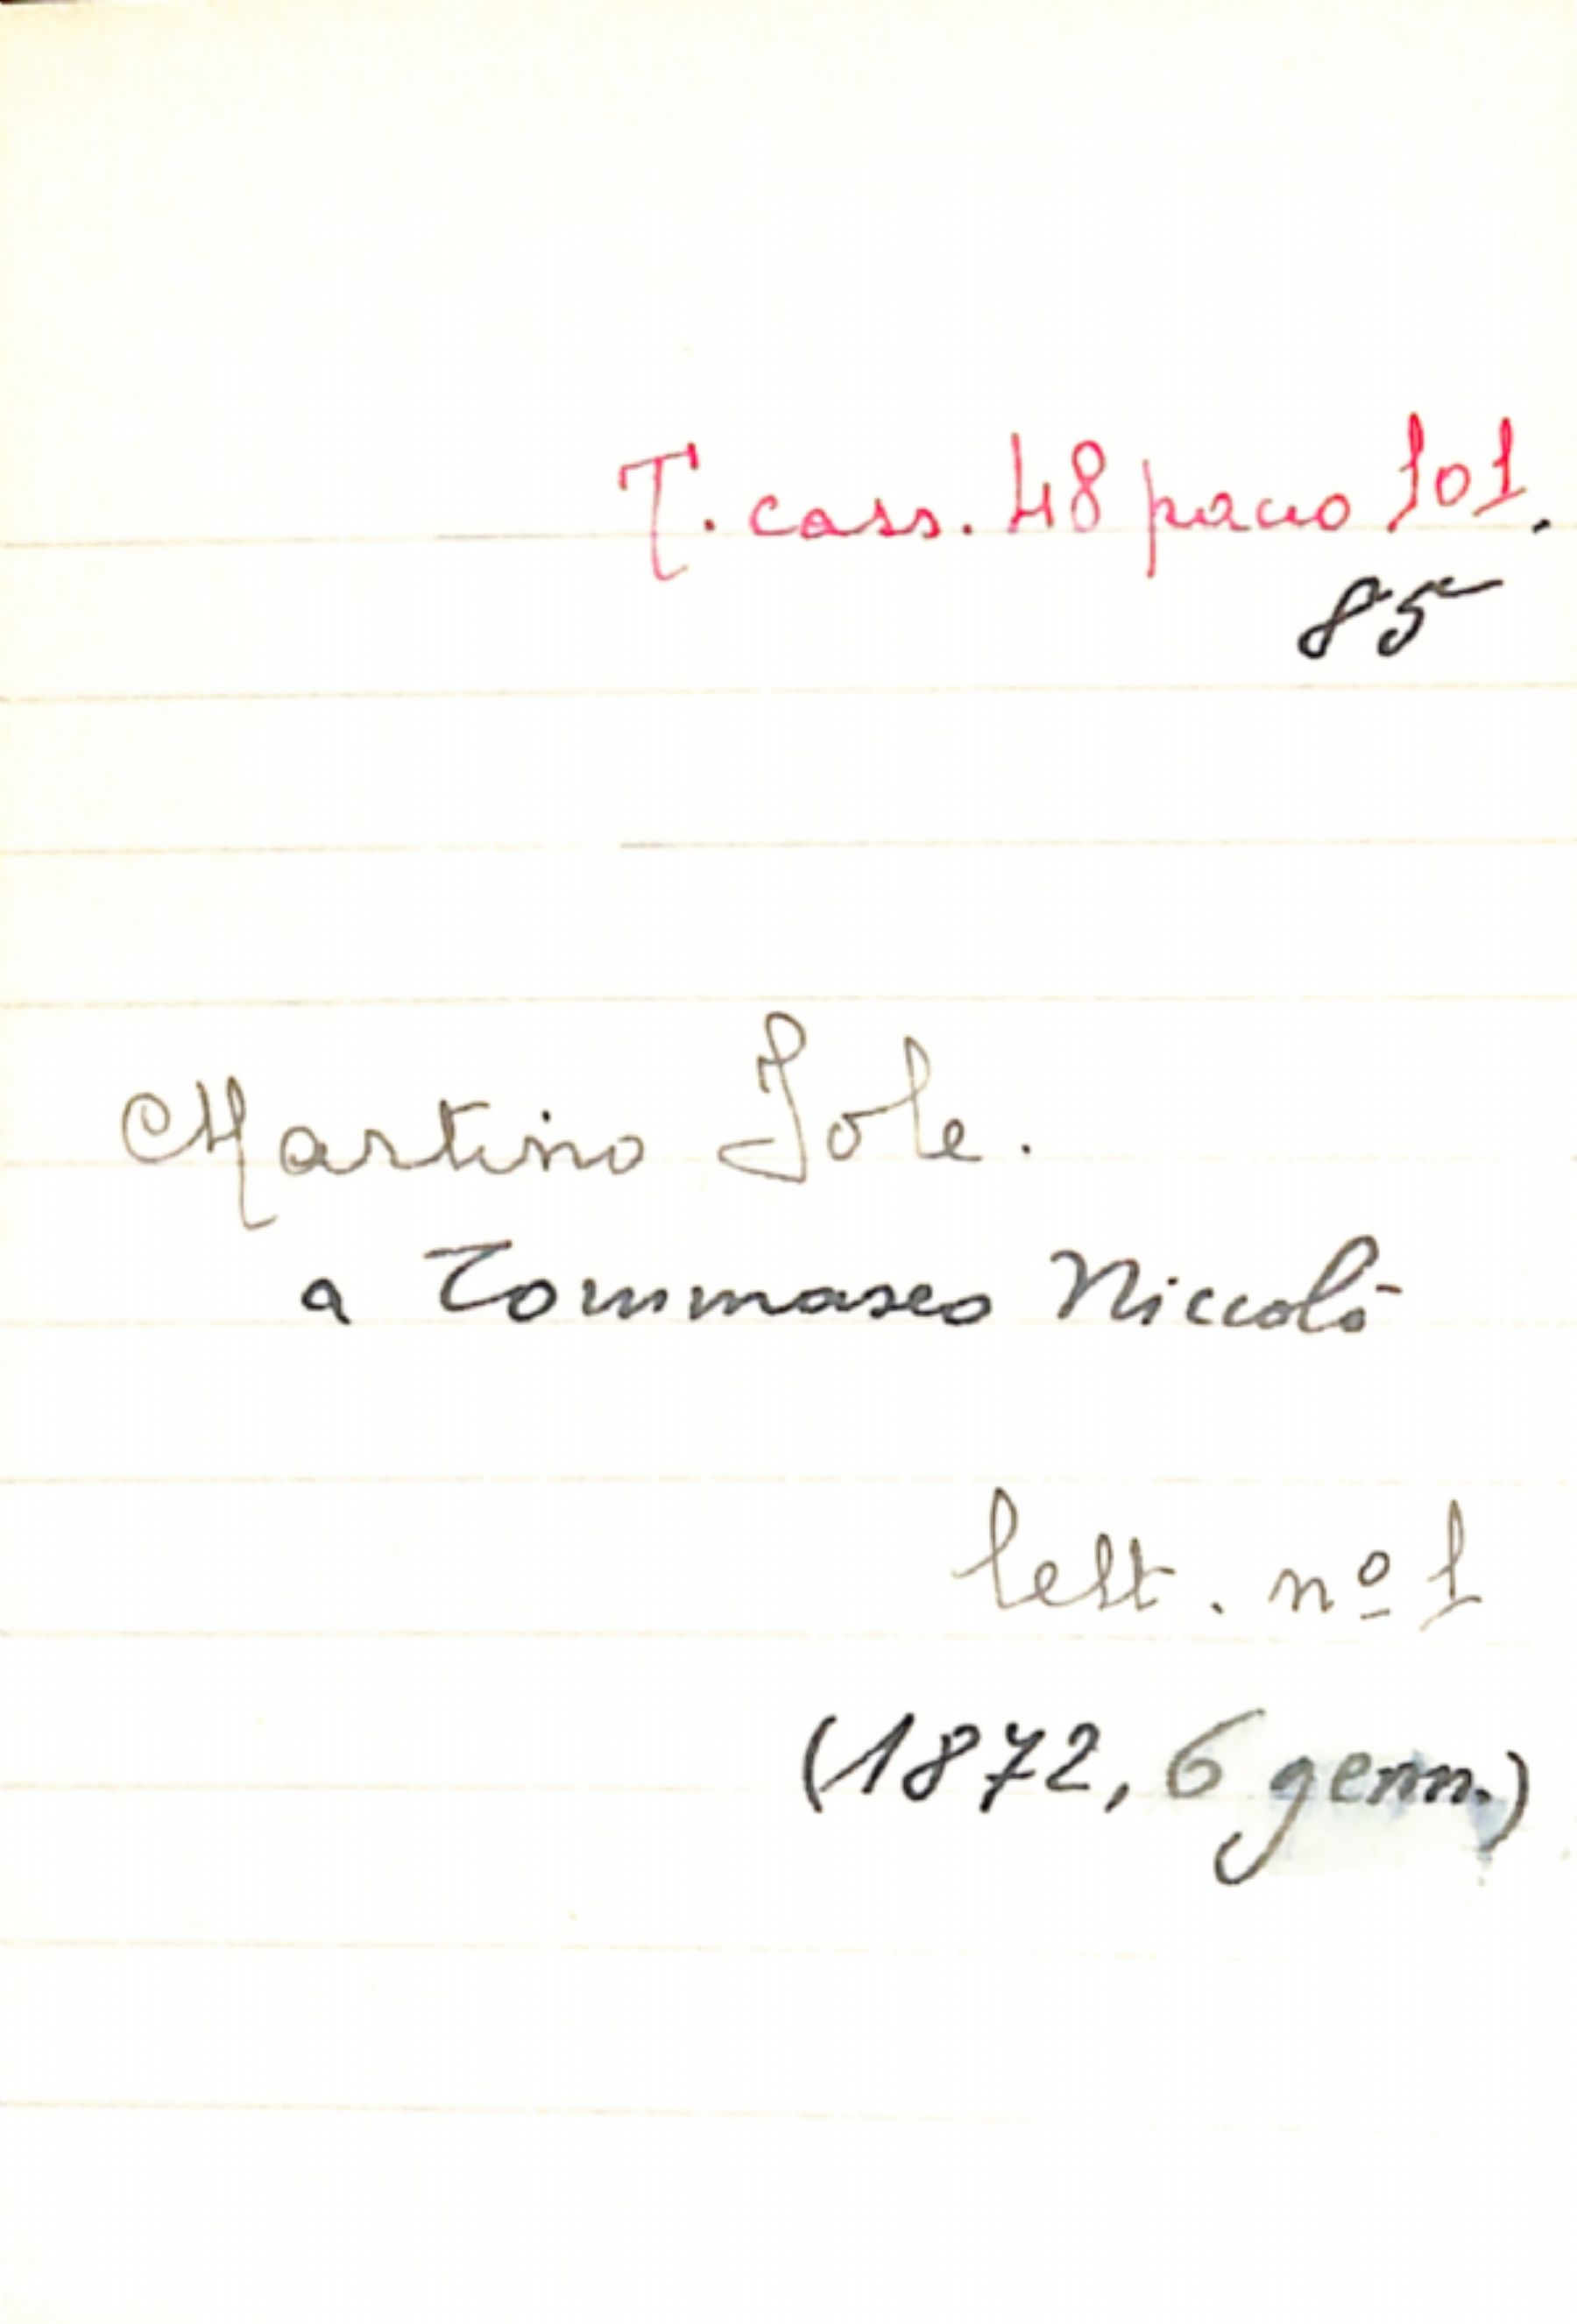 T. cass. 48 pacco 101.
85
Martino Jole.
a Tommaseo Niccolò
lett. nº 1
(1872, 6 genn.)